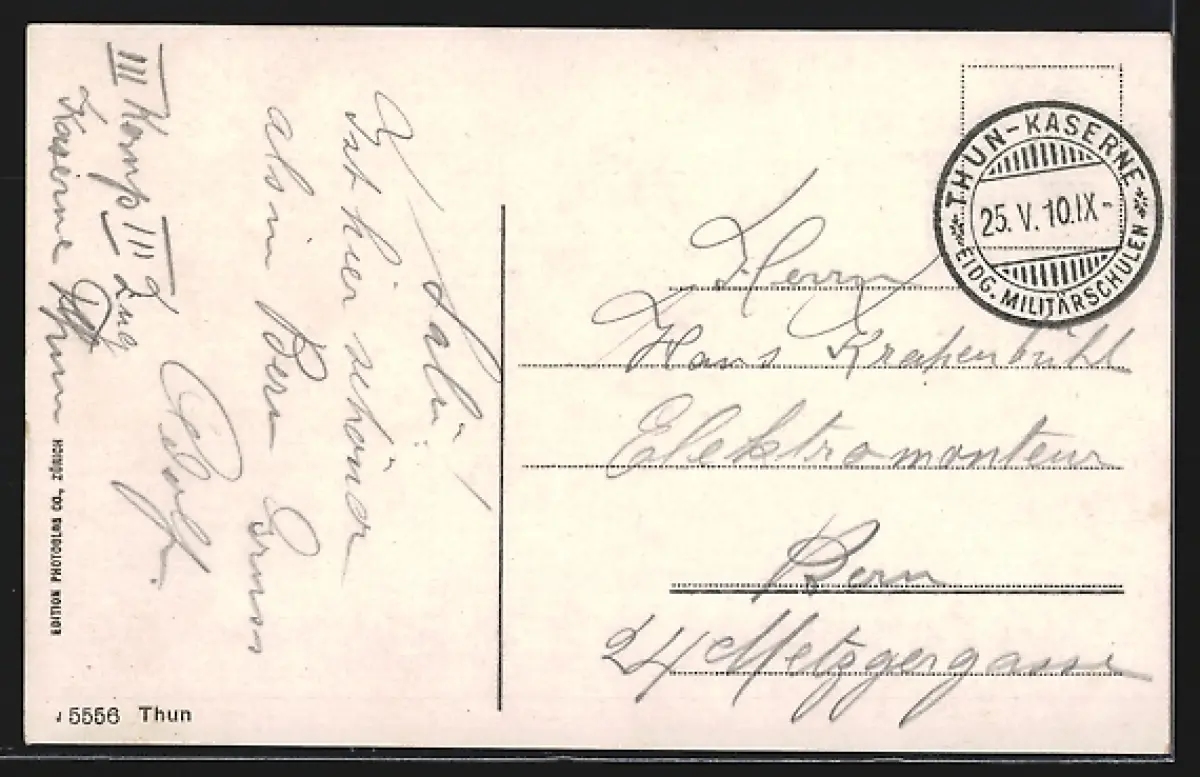 Salü!
Ist hier schöner
als in Bern Gruss
Adolf.
III Komp III Zug
Kaserne Thun
THUN-KASERNE
25. V. 10. IX-
EIDG. MILITÄRSCHULEN
Herrn
Hans Krähenbühl
Elektromonteur
Bern
24 Metzgergasse
EDITION PHOTOGLOB CO., ZÜRICH
J 5556 Thun